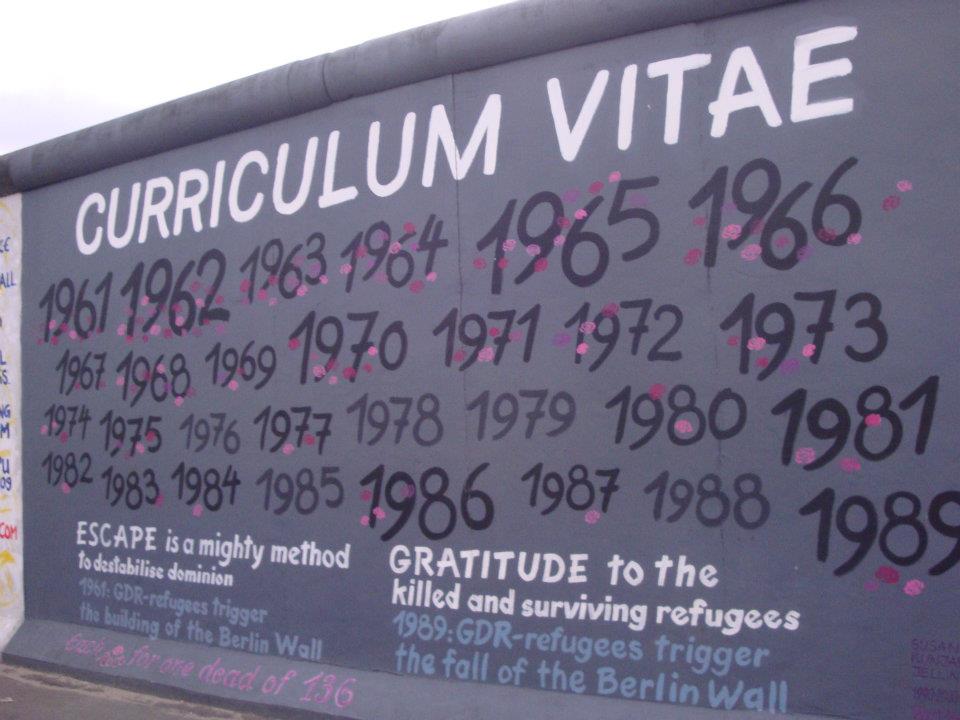 CURRICULUM VITAE
1961 1962 1963 1964 1965 1966
1967 1968 1969 1970 1971 1972 1973
1974 1975 1976 1977 1978 1979 1980 1981
1982 1983 1984 1985 1986 1987 1988 1989
ESCAPE is a mighty method
to destabilise dominion
1961: GDR-refugees trigger
the building of the Berlin Wall
GRATITUDE to the
killed and surviving refugees
1989: GDR-refugees trigger
the fall of the Berlin Wall
each for one dead of 136
ALL
COM